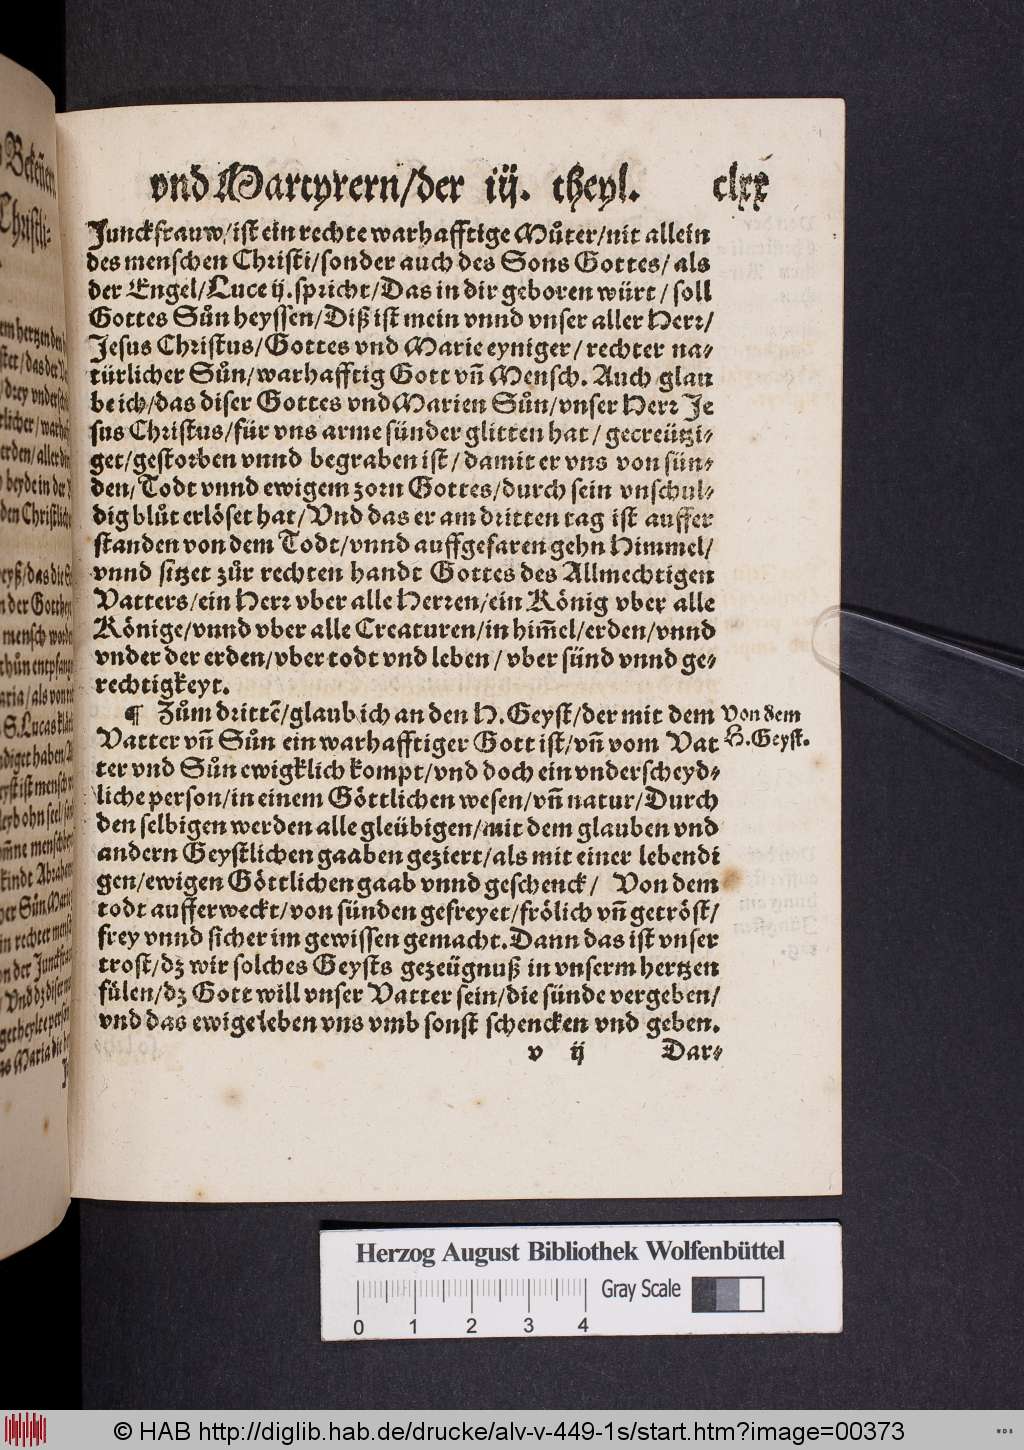 vnd Martyrern/der iij. theyl. clxx
Junckfrauw/ist ein rechte warhafftige Můter/nit allein
des menschen Christi/sonder auch des Sons Gottes/als
der Engel/Luce ij.spricht/Das in dir geboren würt/soll
Gottes Sůn heyssen/Diß ist mein vnnd vnser aller Herr/
Jesus Christus/Gottes vnd Marie eyniger/rechter na-
türlicher Sůn/warhafftig Gott vñ Mensch. Auch glau
be ich/das diser Gottes vnd Marien Sůn/vnser Herr Je
sus Christus/für vns arme sünder glitten hat/gecreützi-
get/gestorben vnnd begraben ist/damit er vns von sün-
den/Todt vnnd ewigem zorn Gottes/durch sein vnschul-
dig blůt erlöset hat/Vnd das er am dritten tag ist auffer
standen von dem Todt/vnnd auffgefaren gehn Himmel/
vnnd sitzet zůr rechten handt Gottes des Allmechtigen
Vatters/ein Herr vber alle Herren/ein König vber alle
Könige/vnnd vber alle Creaturen/in him̃el/erden/vnnd
vnder der erden/vber todt vnd leben/vber sünd vnnd ge-
rechtigkeyt.
¶ Zům drittẽ/glaub ich an den H.Geyst/der mit dem
Von dem
H.Geyst.
Vatter vñ Sůn ein warhafftiger Gott ist/vñ vom Vat
ter vnd Sůn ewigklich kompt/vnd doch ein vnderscheyd-
liche person/in einem Göttlichen wesen/vñ natur/Durch
den selbigen werden alle gleübigen/mit dem glauben vnd
andern Geystlichen gaaben geziert/als mit einer lebendi
gen/ewigen Göttlichen gaab vnnd geschenck/ Von dem
todt aufferweckt/von sünden gefreyet/frölich vñ getröst/
frey vnnd sicher im gewissen gemacht.Dann das ist vnser
trost/dz wir solches Geysts gezeügnuß in vnserm hertzen
fülen/dz Gott will vnser Vatter sein/die sünde vergeben/
vnd das ewige leben vns vmb sonst schencken vnd geben.
v ij Dar-
Herzog August Bibliothek Wolfenbüttel
Gray Scale
0 1 2 3 4
© HAB http://diglib.hab.de/drucke/alv-v-449-1s/start.htm?image=00373